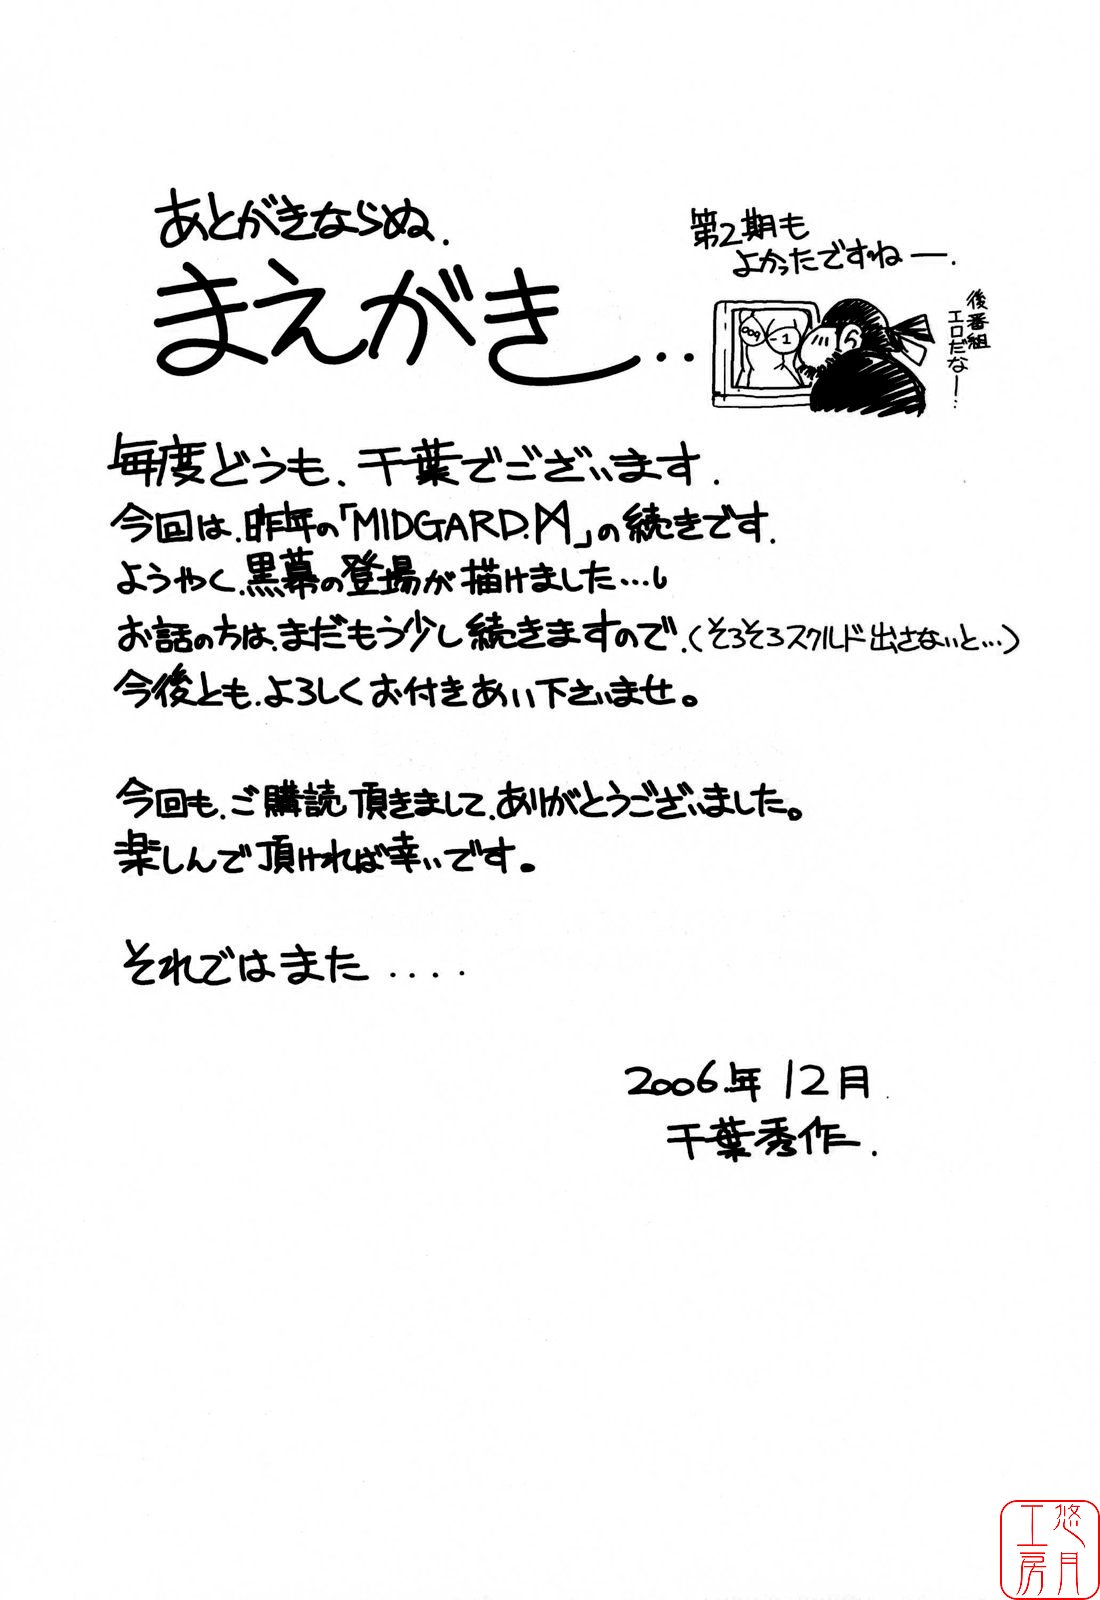 あとがきならぬ.
まえがき...
第2期も
よかったですねー.
後番組
エロだなー..
009
-1
毎度どうも、千葉でございます.
今回は、昨年の「MIDGARD.M」の続きです.
ようやく、黒幕の登場が描けました…し
お話の方は、まだもう少し続きますので、(そろそろスクルド出さないと…)
今後とも、よろしくお付きあい下さいませ。
今回も、ご購読頂きまして、ありがとうございました。
楽しんで頂ければ幸いです。
それではまた....
2006年12月
千葉秀作.
悠月
工房